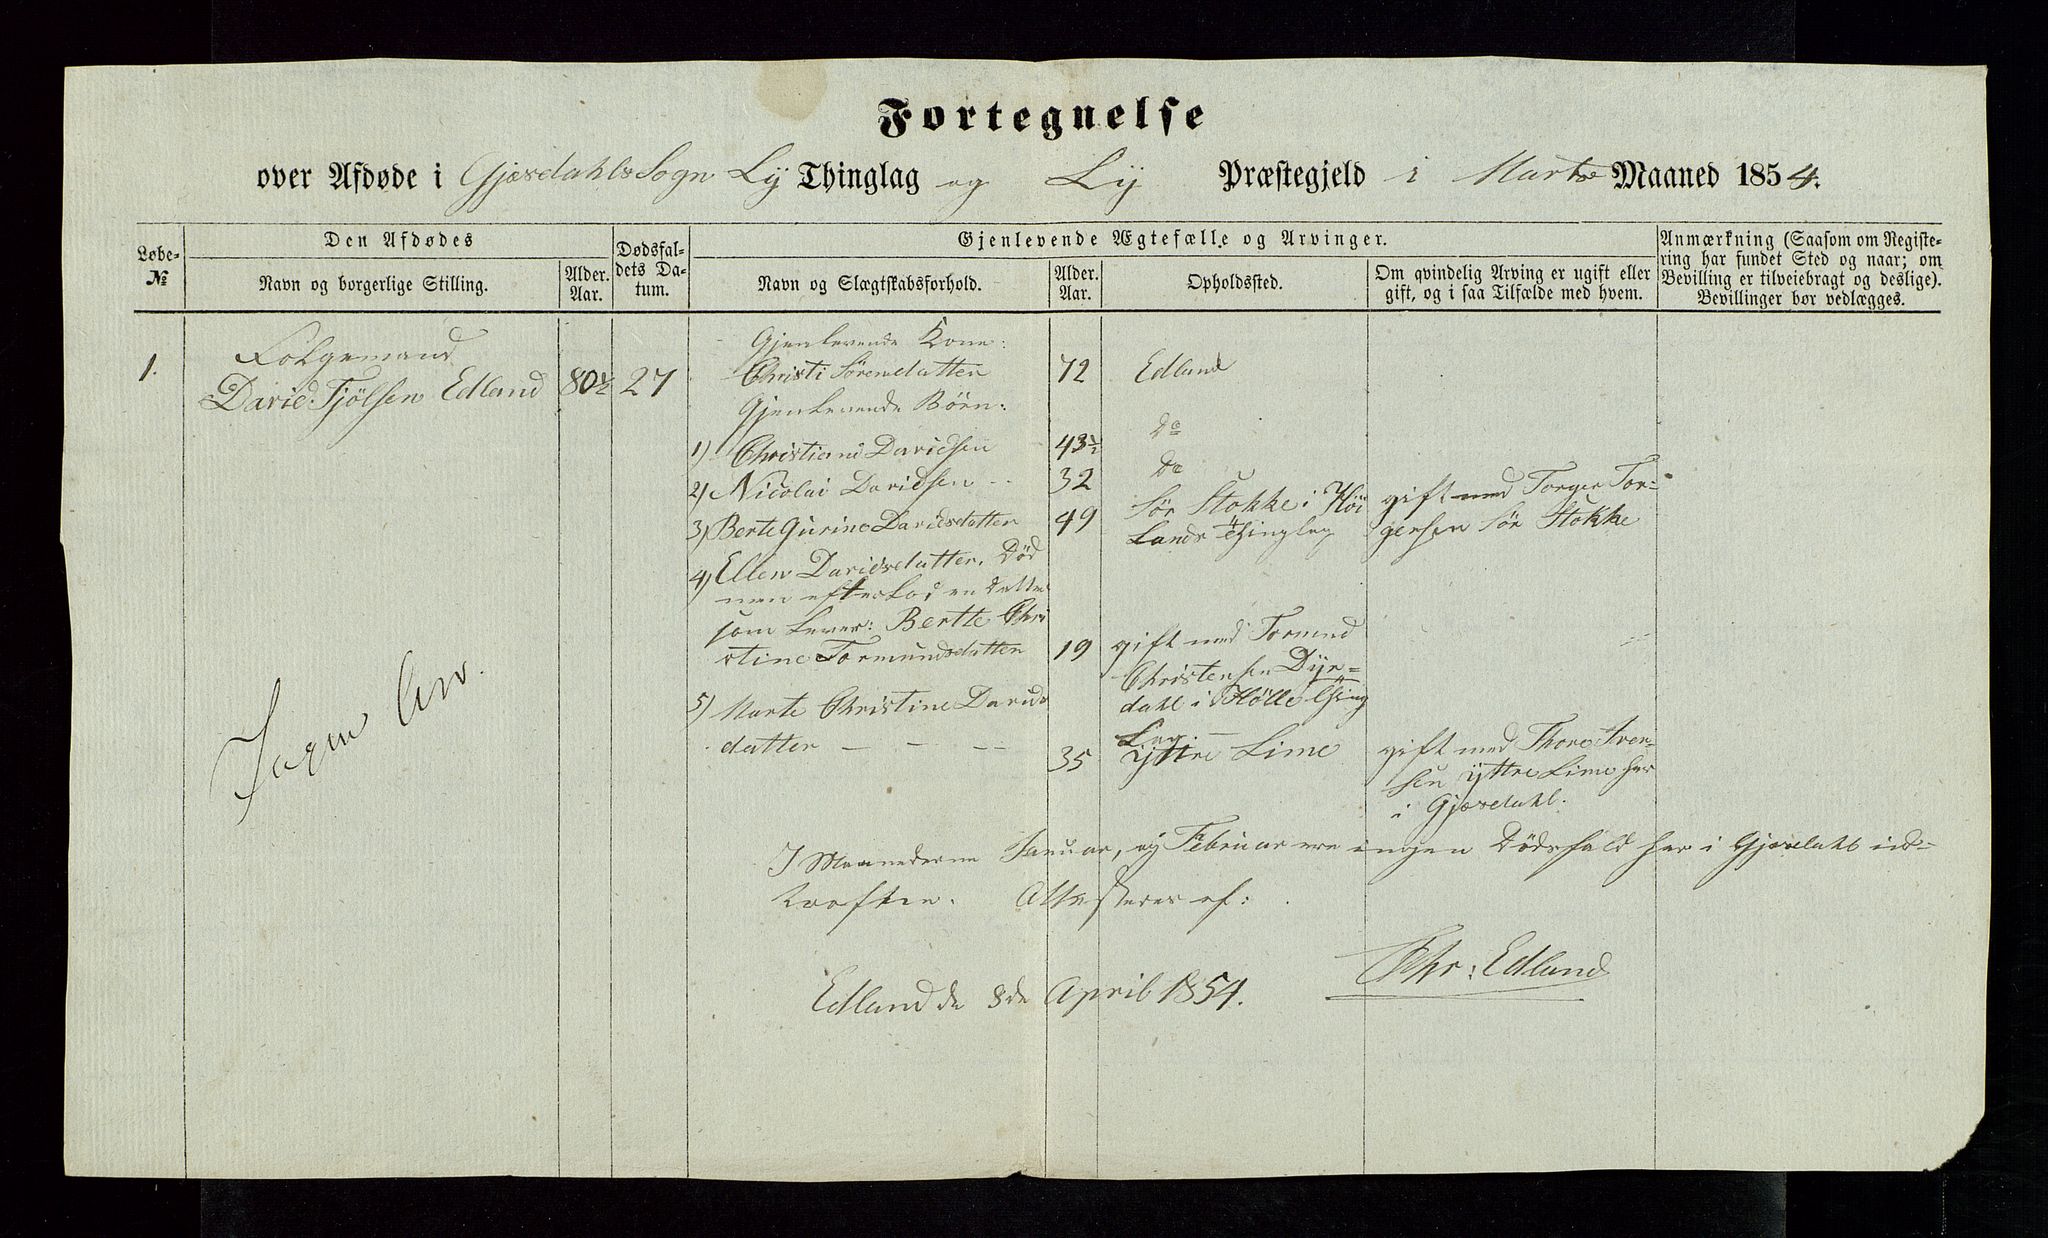 Fortegnelse
over Afdøde i Gjæsdahls Sogn Ly Thinglag og Ly Præstegjeld i Marts Maaned 1854.
Løbe-
№
Den Afdødes
Navn og borgerlige Stilling.
Alder.
Aar.
Dødsfal-
dets Da-
tum.
Gjenlevende Ægtefælle og Arvinger.
Navn og Slægtskabsforhold.
Alder.
Aar.
Opholdssted.
Om qvindelig Arving er ugift eller
gift, og i saa Tilfælde med hvem.
Anmærkning (Saasom om Registe-
ring har fundet Sted og naar; om
Bevilling er tilveiebragt og deslige).
Bevillinger bør vedlægges.
1.
Folgemand
David Tjølsen Edland 80½ 27
Gjenlevende Kone:
Christi Sørensdatter 72 Edland
Gjenlevende Børn:
1) Christian Davidsen 43½ Do
2) Nicolai Davidsen - - 32 Do
3) Berte Gurine Davidsdatter 49 Sør Stokke i Høi
Lands Thinglag
gift med Torger Tor-
gersen Sør Stokke
4) Ellen Davidsdatter, Død
men efterlod en Datter
som lever: Bertte Chri
stine Tormundsdatter 19 gift med Tormund
Christensen Dyr-
dahl i Hølle Thing
Lag. —
5) Marte Christine Davids
datter — — — 35 Yttre Lime
gift med Thore Sven-
sen Yttre Lime her
i Gjæsdahl.
Ingen Arv.
I Maanederne Januar, og Februar ere ingen Dødsfald her i Gjæsdahl ind-
traften. Attesteres af:
Edland de 8de April 1854.
Chr: Edland